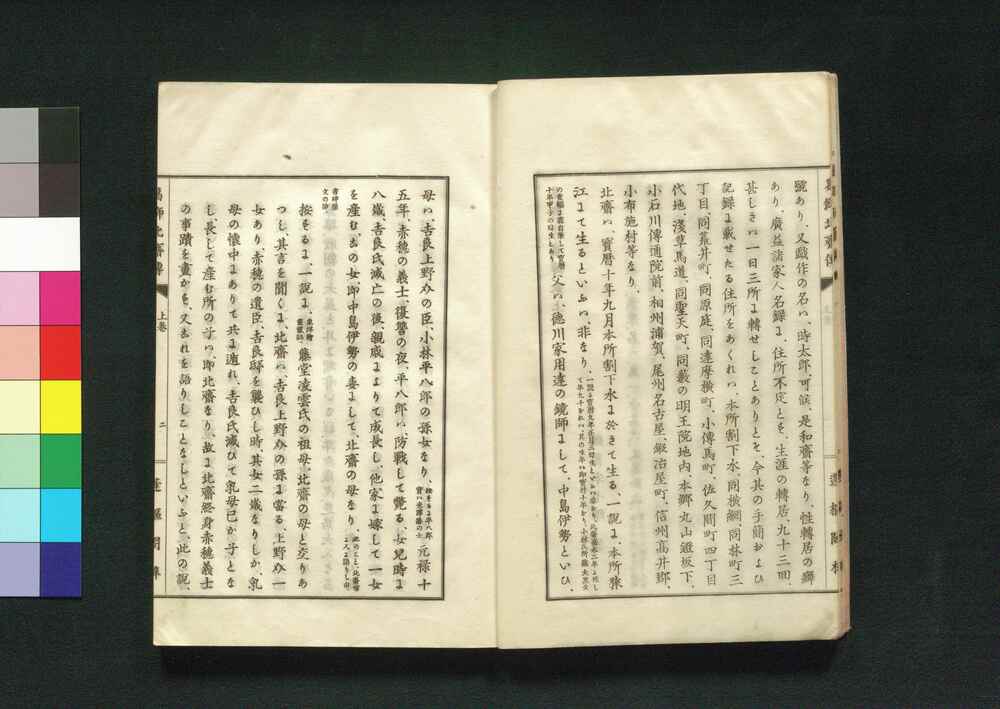 號あり、又戯作の名ハ、時太郎、可候、是和齋等なり、性轉居の癖
あり、廣益諸家人名録ま、住所不定とを、生涯の轉居、九十三回、
甚しきハ一日三所ま轉せしことありとを、今其の手簡および
記録ま載せたる住所をあくれハ、本所割下水、同横網、同林町三
丁目、同荒井町、同原庭、同達摩横町、小傳馬町、佐久間町四丁目
代地、淺草馬道、同聖天町、同藪の明王院地内、本郷丸山鐙坂下、
小石川傳通院前、相州浦賀、尾州名古屋、鍛冶屋町、信州高井郡、
小布施村等なり、
北齋ハ、寶暦十年九月本所割下水ま於きて生る、一説ま、本所狭
江まて生るといふハ、非なり、
父ハ、徳川家用達の鏡師まして、中島伊勢といひ、
母ハ、吉良上野介の臣、小林平八郎の孫女なり、元禄十
五年、赤穂の義士、復讐の夜、平八郎ハ、防戦して斃る、女兒時ま
八歳、吉良氏滅亡の後、親戚まよりて成長し、他家ま嫁して一女
を産む、去の女、即中島伊勢の妻まして、北齋の母なり、
按をるま、一説ま、藤堂凌雲氏の祖母、北齋の母と交りあ
りし、其言を聞くま、北齋ハ、吉良上野介の孫ま當る、上野介一
女あり、赤穂の遺臣、吉良邸を襲ひし時、其女二歳なりしか、乳
母の懐中まありて共ま遁れ、吉良氏滅ひて、乳母己か子とな
し、長して産む所の子ハ、即北齋なり、故ま北齋終身赤穂義士
の事蹟を畫かを、又去れを語りしことなしといふと、此の説、
上巻
二